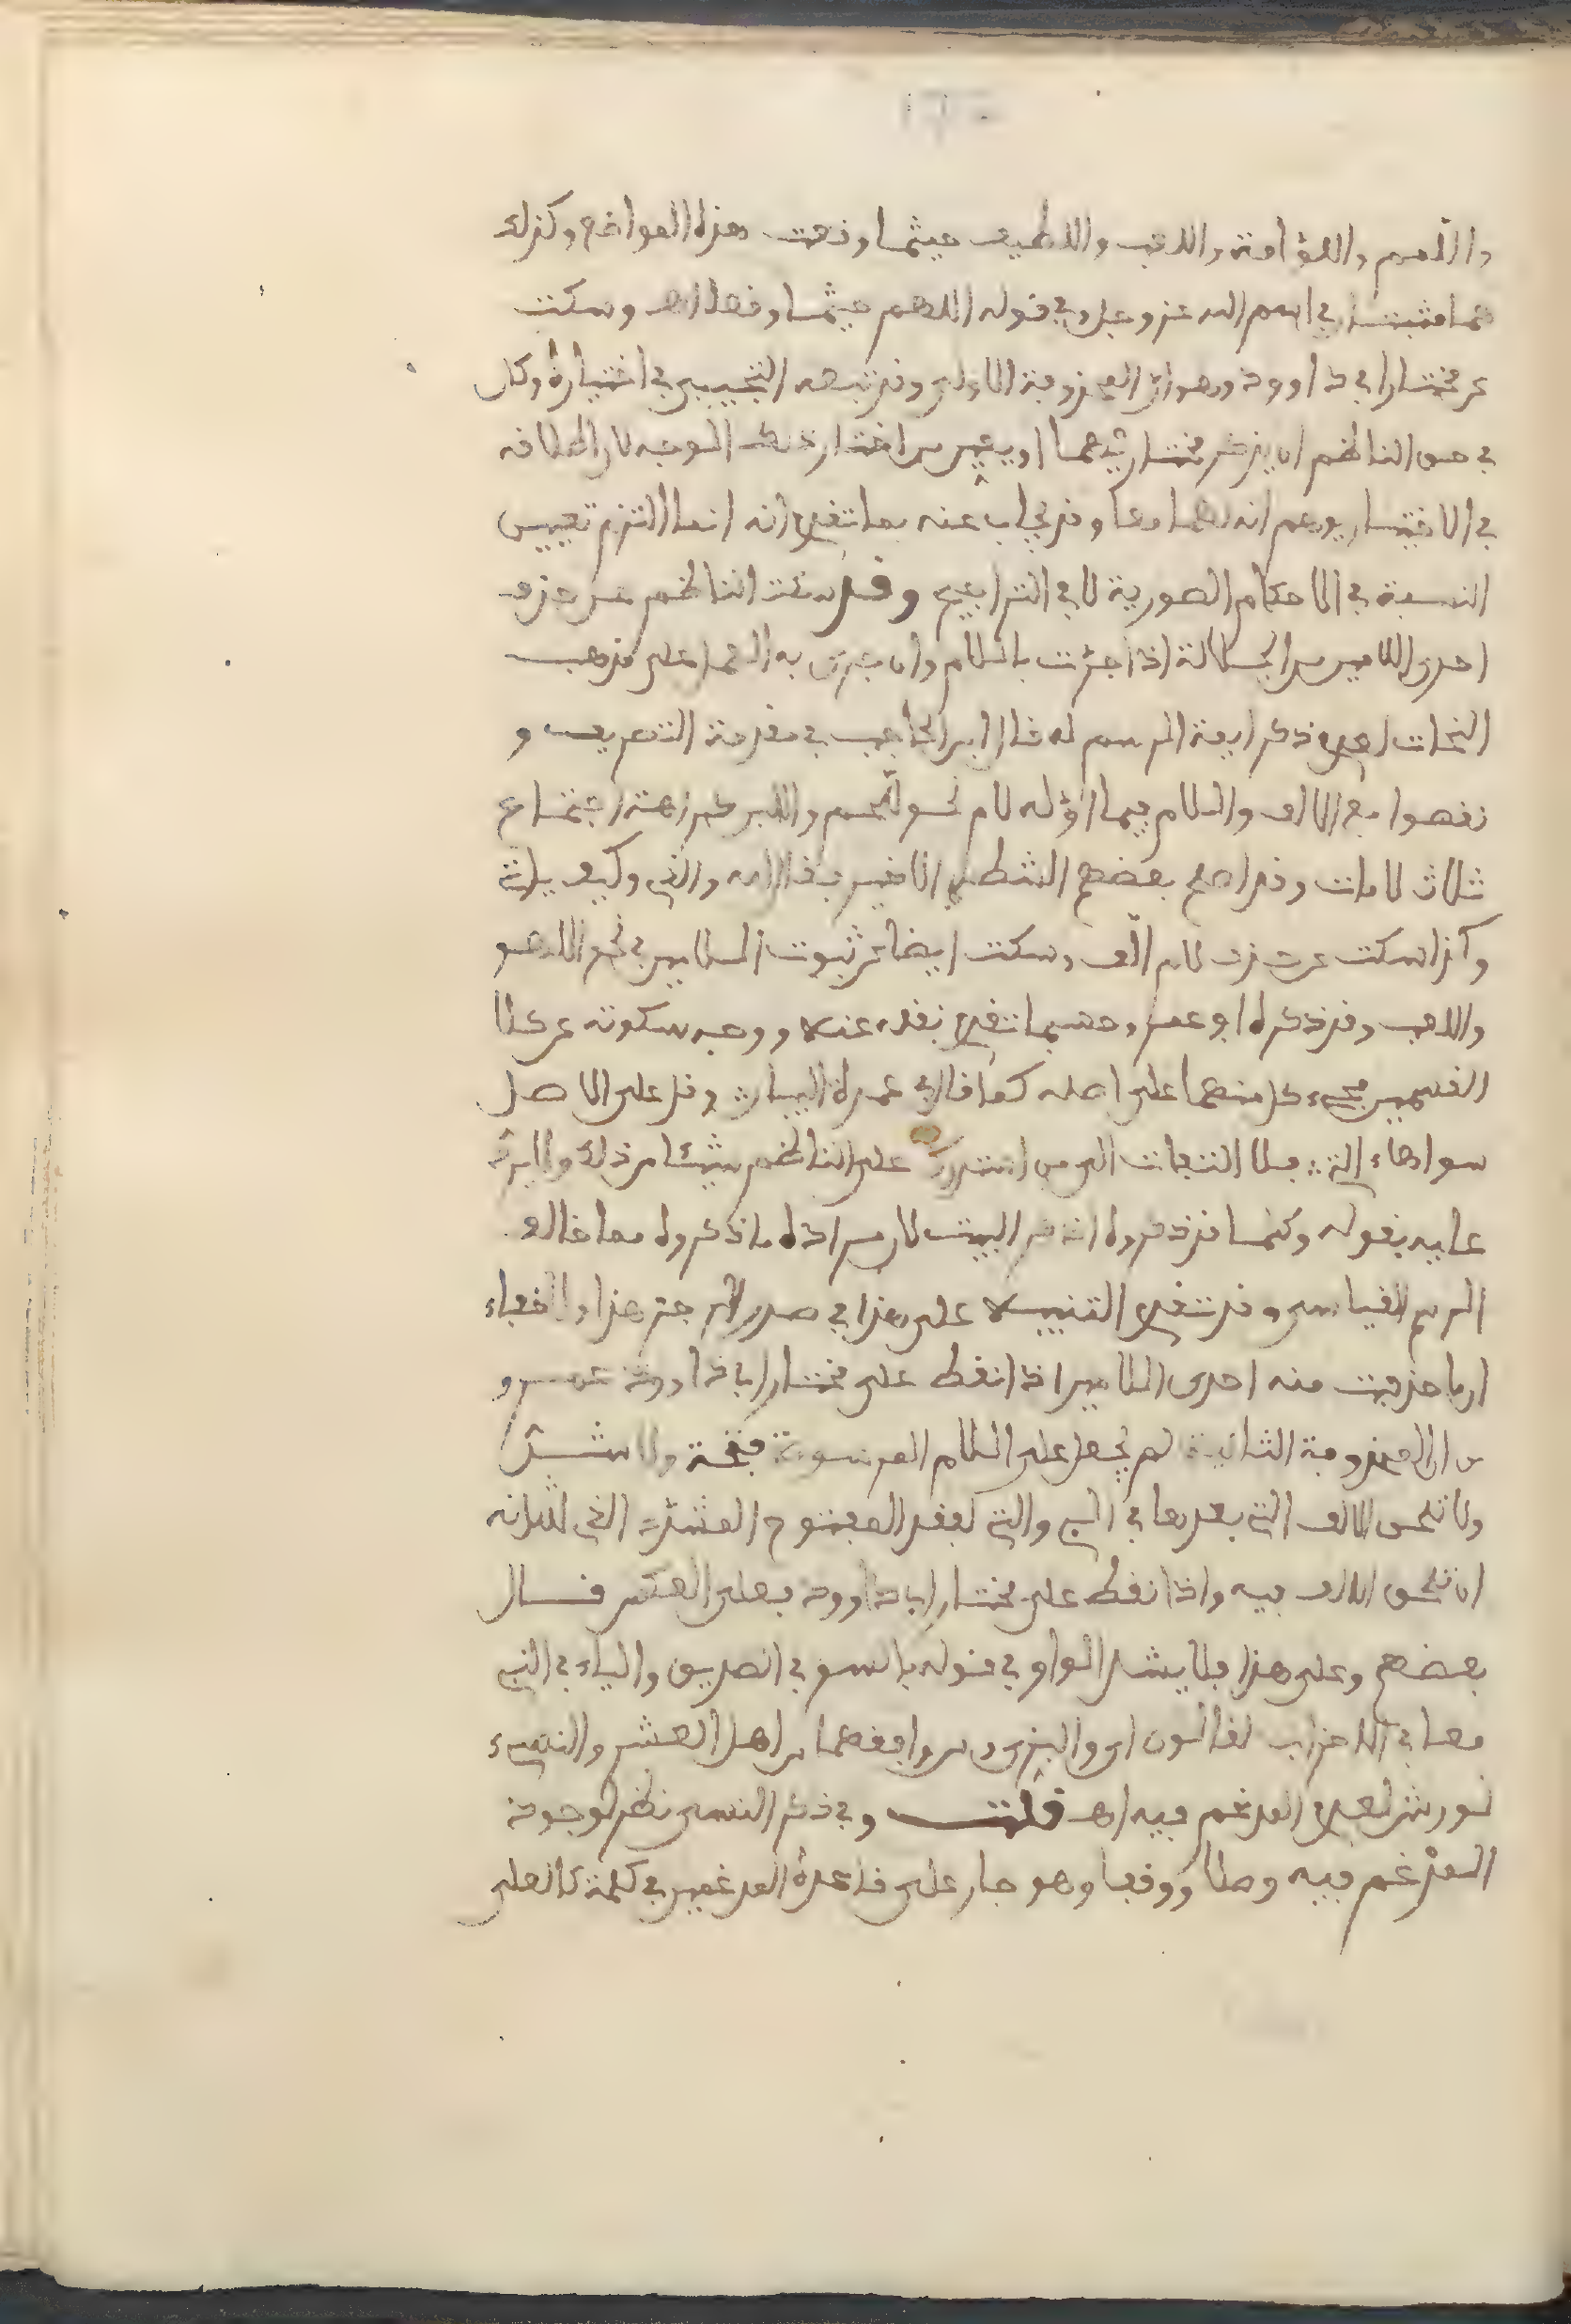 واللّمم واللوّامة واللعب واللطيف حيثما وقعت هذه المواضع وكذلك
هما مثبتتان في اسم الله عز وجل وفي قوله اللهم حيثما وقعا اهـ وسكت
عن مختار ابي داوود وهو ان المحذوفة الاولى وقد تبعه التجيبي في اختياره وكان
في حق الناظم ان يذكر مختاريهما او يعين من اختار ذلك الوجه لان اطلاقه
في الاختيار يوهم انه لهما معا وقد يجاب عنه بما تقدم انه انما التزم تعيين
النسبة في الاحكام الصورية لا في التراجيح وقد سكت الناظم عن حذف
احدى اللامين من الجلالة اذا جرّت باللام وان جرى به العمل على مذهب
النحات لعدم ذكر ايمة الرسم له قال ابن الحاجب في مقدمة التصريف و
نقصوا مع الالف واللام مما اوّله لام نحو للّحم وللّبن كراهة اجتماع
ثلاث لامات وقد اصلح بعضهم الشطر الاخير فقال الله والذي وكيف ياتي
وكذا سكت عن حذف لام الّف وسكت ايضا عن ثبوت اللامين في نحو اللهو
واللعب وقد ذكره ابو عمرو حسبما تقدم نقله عنه ووجه سكوته عن كلا
القسمين مجيء كل منهما على اصله كما قال في عمدة البيان وقل على الاصل
سواها ءات فلا التفات الى من استدرك على الناظم شيئا من ذلك ولا يردّ
عليه بقوله وكلما قد ذكروه اذكر البيت لان مراده ما ذكروه مما خالف
الرسم القياسي وقد تقدم التنبيه على هذا في صدر الترجمة هذا والخفاء
ان ما حذفت منه احدى اللامين اذا نقط على مختار ابي داوود عمرو
من ان المحذوفة الثانية لم يجعل على اللام المرسومة فتحة ولا شدّ
ولا تلحق الالف التي بعدها في الى والتي لفقد المفتوح المشدّد الذي شانه
ان تلحق الالف فيه واذا نقط على مختار ابي داوود فعلى العكس قال
بعضهم وعلى هذا فلا يشد الواو في قوله بالسو في الصديق والياء في النبي
معا في الاحزاب لقالون اي والبزي ومن وافقهما من اهل العشر والنسيء
لورش لعدم المدغم فيه اهـ قلت وفي ذكر النسي نظر لوجود
المدغم فيه وصلا ووقفا وهو جار على قاعدة المدغمين في كلمة كالعلي